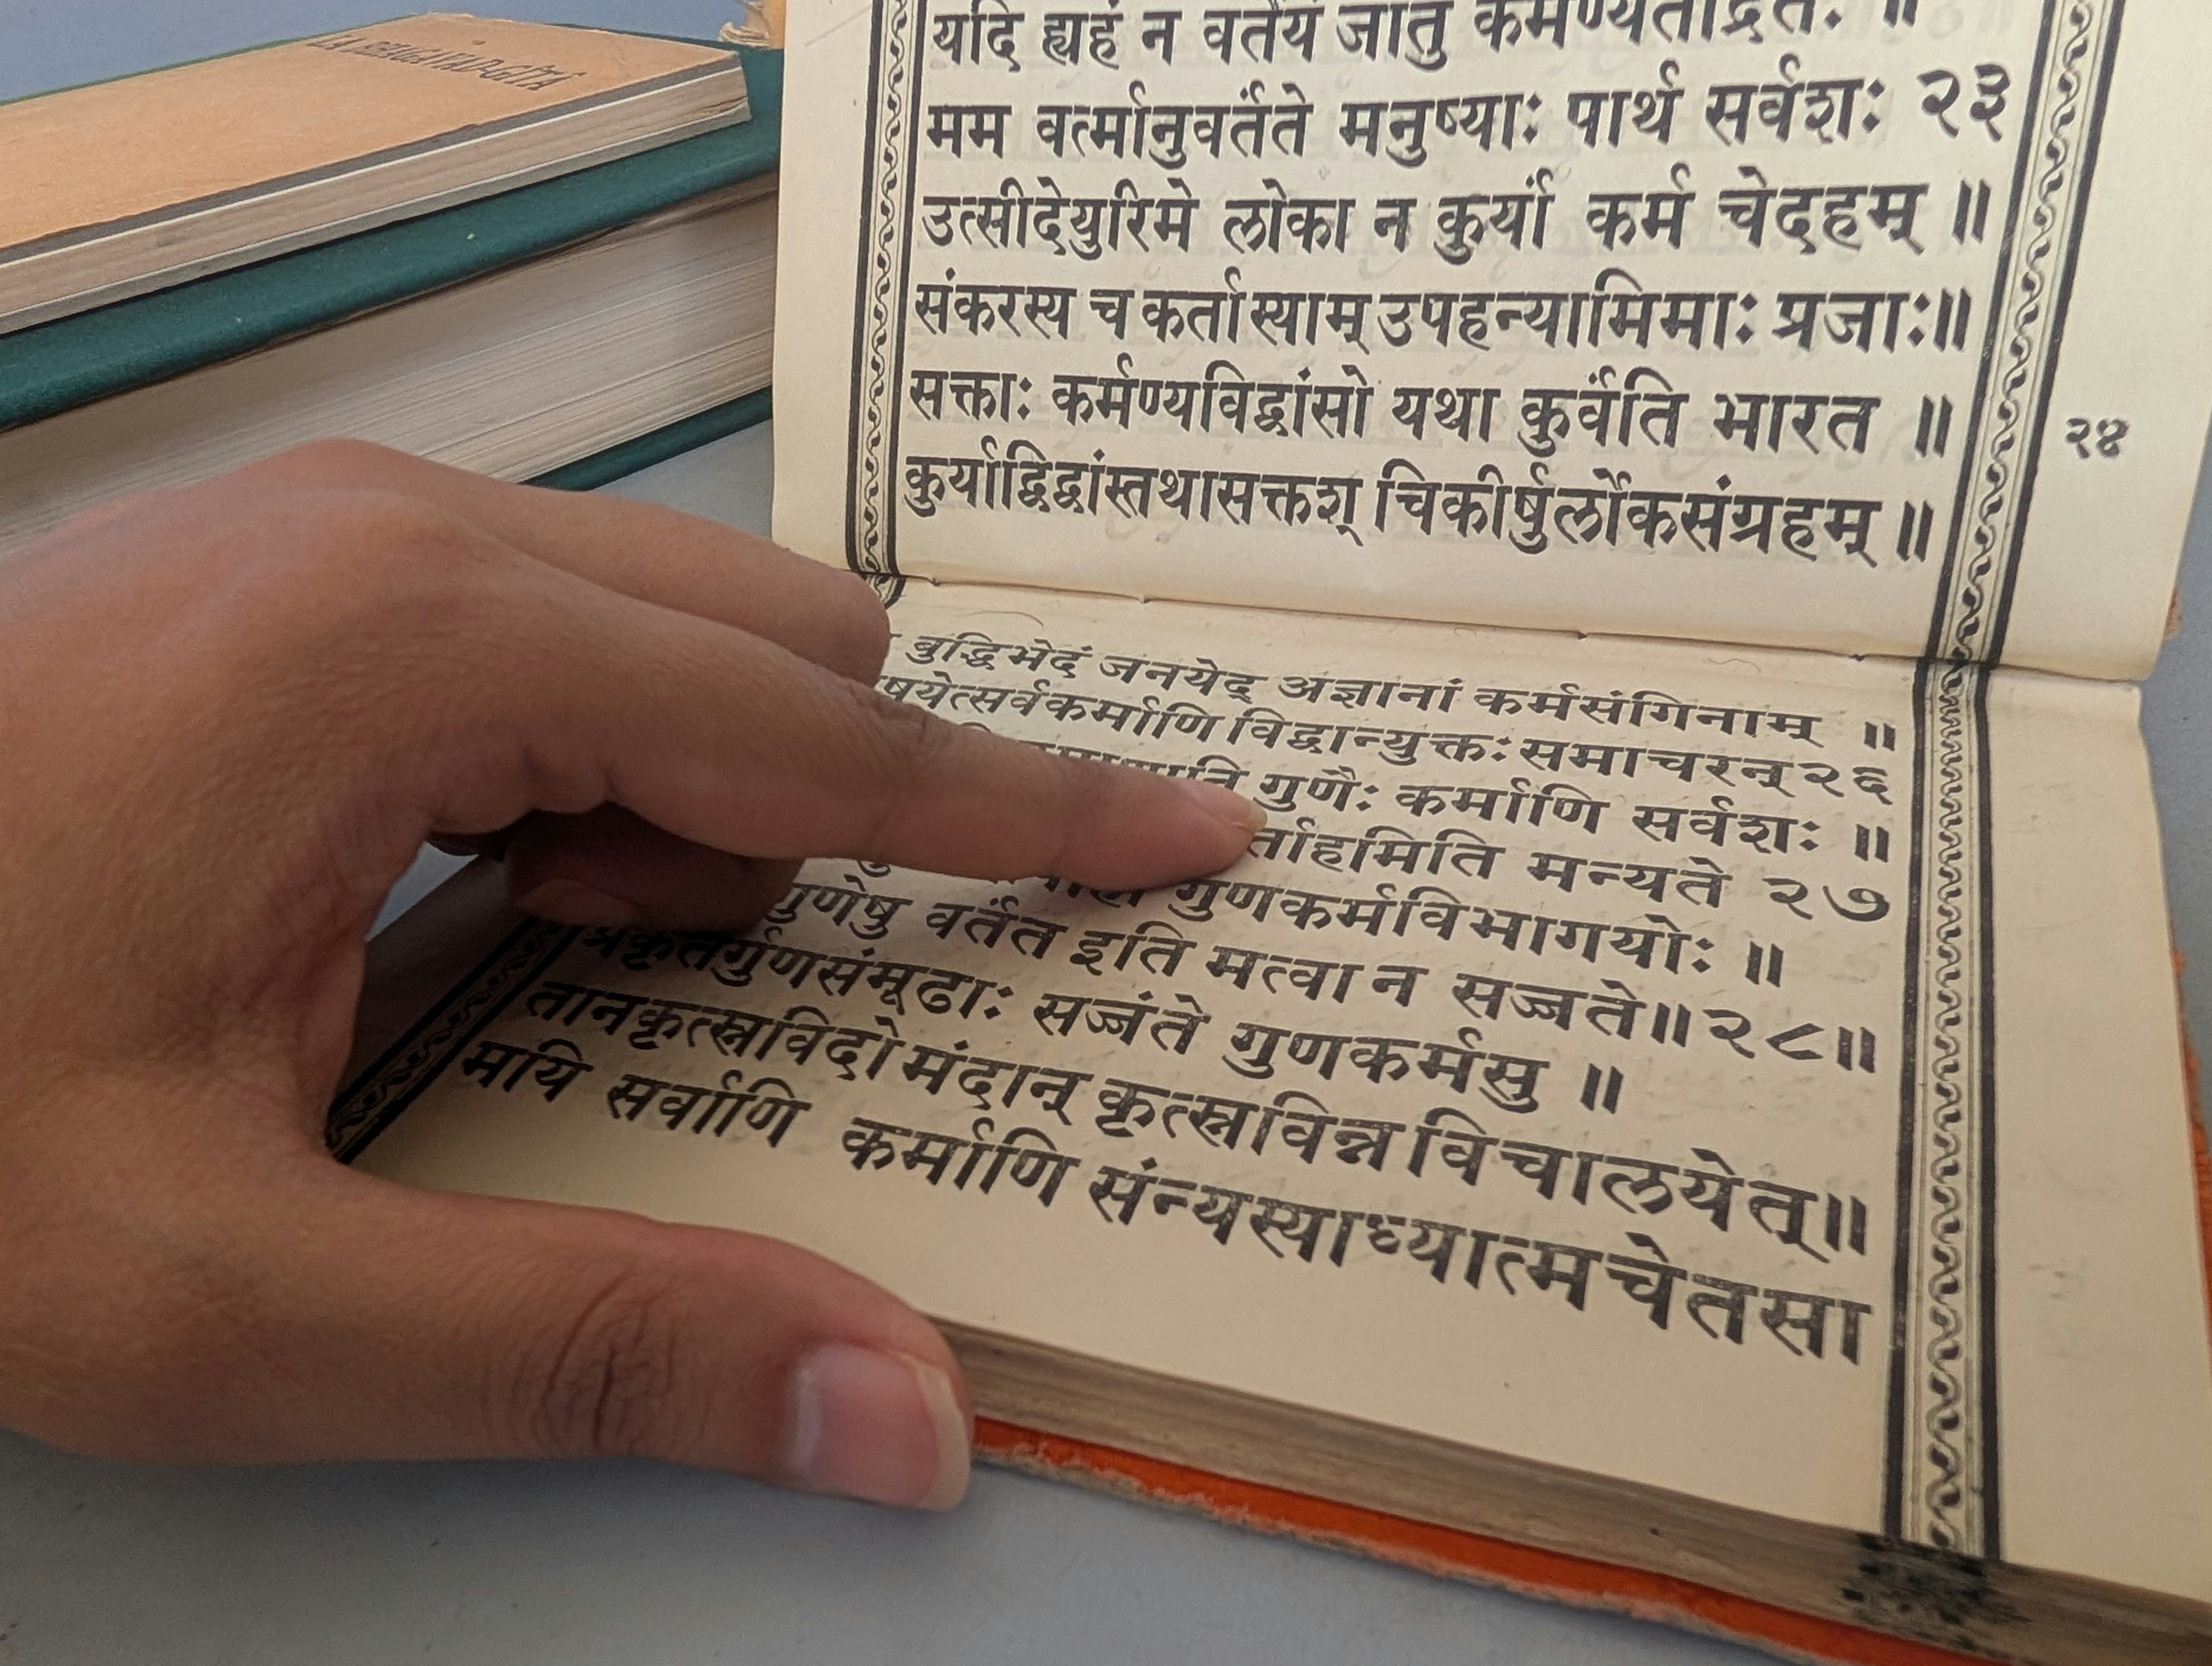 LA BHAGAVAD-GÎTÂ
यदि ह्यहं न वर्तेयं जातु कर्मण्यतंद्रितः ॥
मम वर्त्मानुवर्तंते मनुष्याः पार्थ सर्वशः २३
उत्सीदेयुरिमे लोका न कुर्यां कर्म चेदहम् ॥
संकरस्य च कर्तास्याम् उपहन्यामिमाः प्रजाः॥
सक्ताः कर्मण्यविद्वांसो यथा कुर्वंति भारत ॥
२४
कुर्याद्विद्वांस्तथासक्तश् चिकीर्षुर्लोकसंग्रहम् ॥
बुद्धिभेदं जनयेद् अज्ञानां कर्मसंगिनाम् ॥
षयेत्सर्वकर्माणि विद्वान्युक्तः समाचरन् २६
गुणैः कर्माणि सर्वशः ॥
र्ताहमिति मन्यते २७
गुणकर्मविभागयोः ॥
गुणेषु वर्तंत इति मत्वा न सज्जते॥२८॥
प्रकृतेर्गुणसंमूढाः सज्जंते गुणकर्मसु ॥
तानकृत्स्नविदो मंदान् कृत्स्नविन्न विचालयेत्॥
मयि सर्वाणि कर्माणि संन्यस्याध्यात्मचेतसा